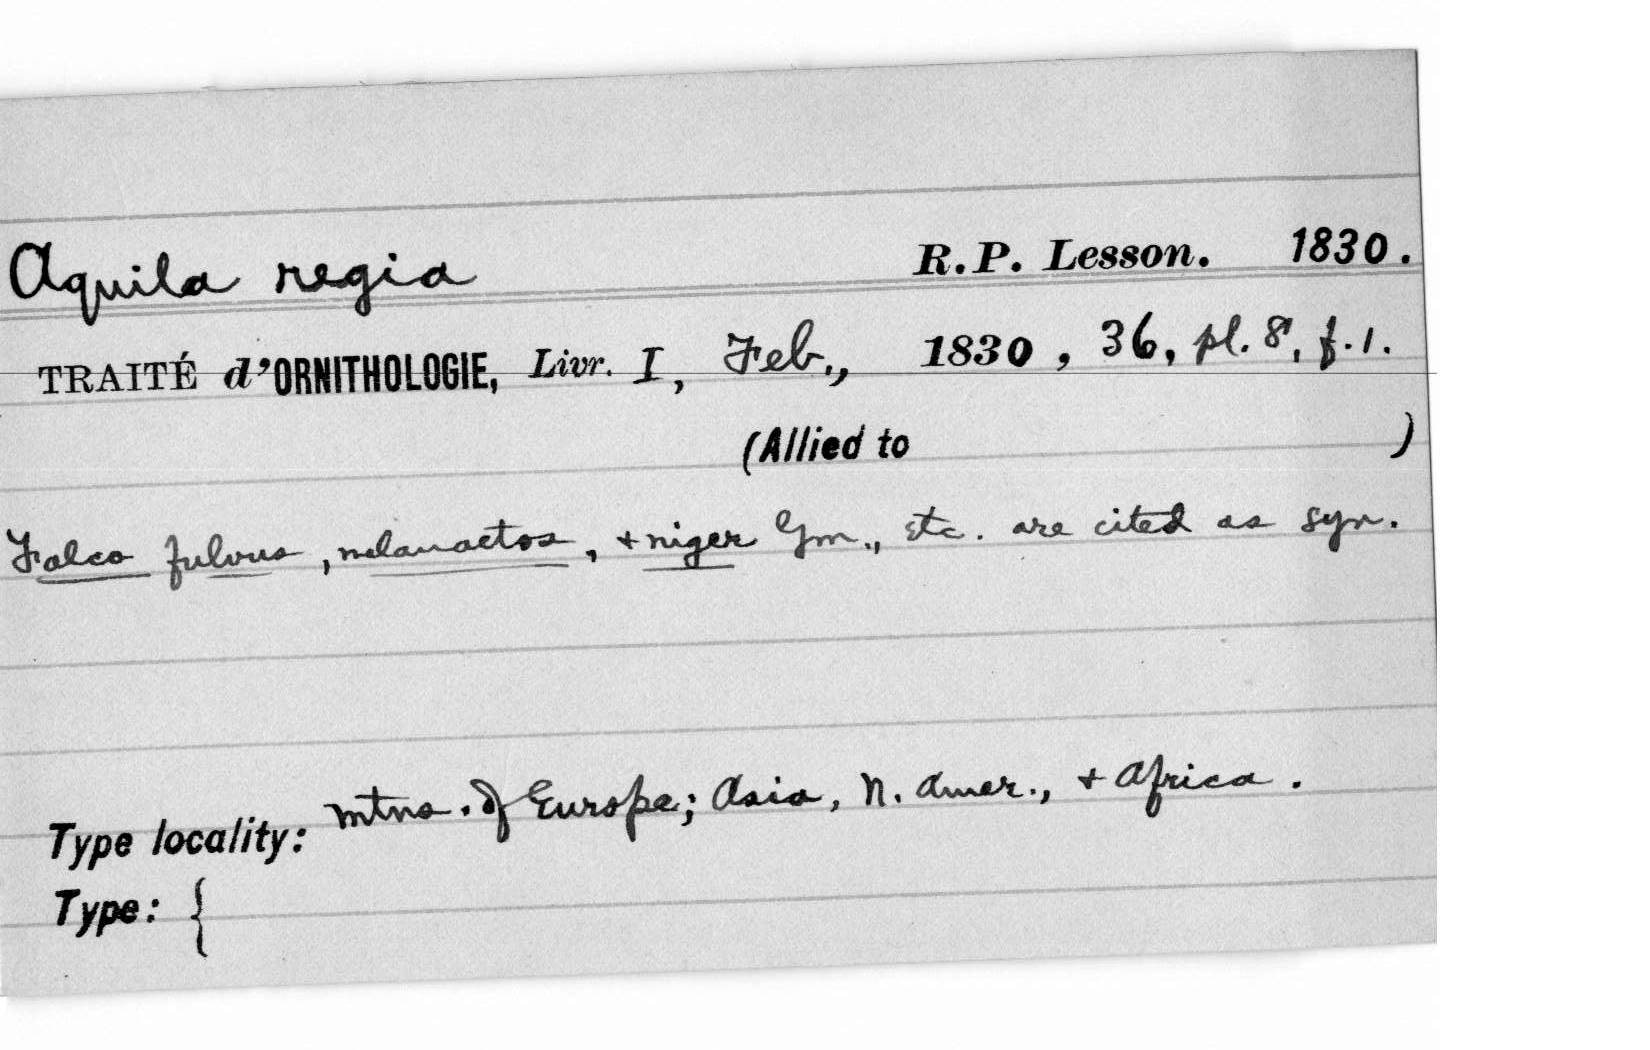 Aquila regia R.P. Lesson. 1830.
TRAITÉ d'ORNITHOLOGIE, Livr. I, Feb., 1830, 36, pl. 8, f. 1.
(Allied to )
Falco fulvus, melanaetos, + niger Gm., etc. are cited as syn.
Type locality: mtns. of Europe; Asia, N. Amer., + Africa.
Type: {